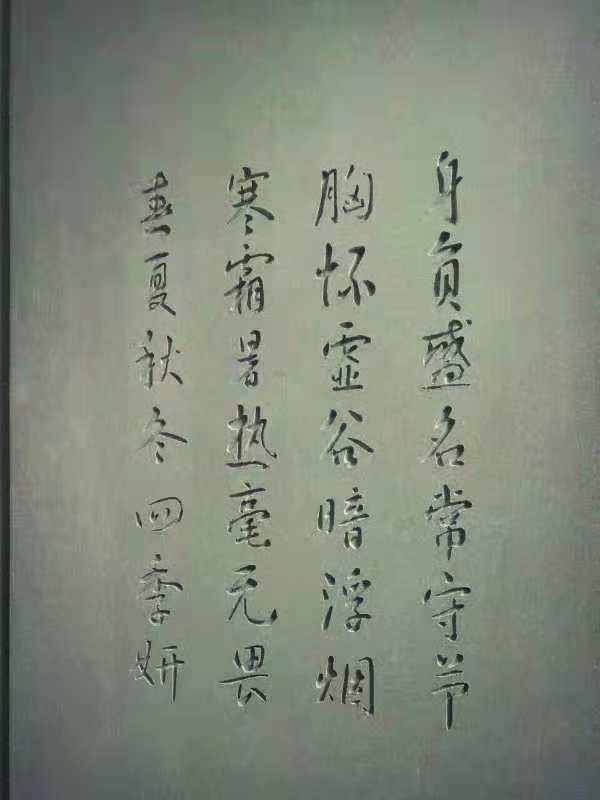 身負盛名常守节
胸怀虚谷暗浮烟
寒霜暑热毫无畏
春夏秋冬四季妍